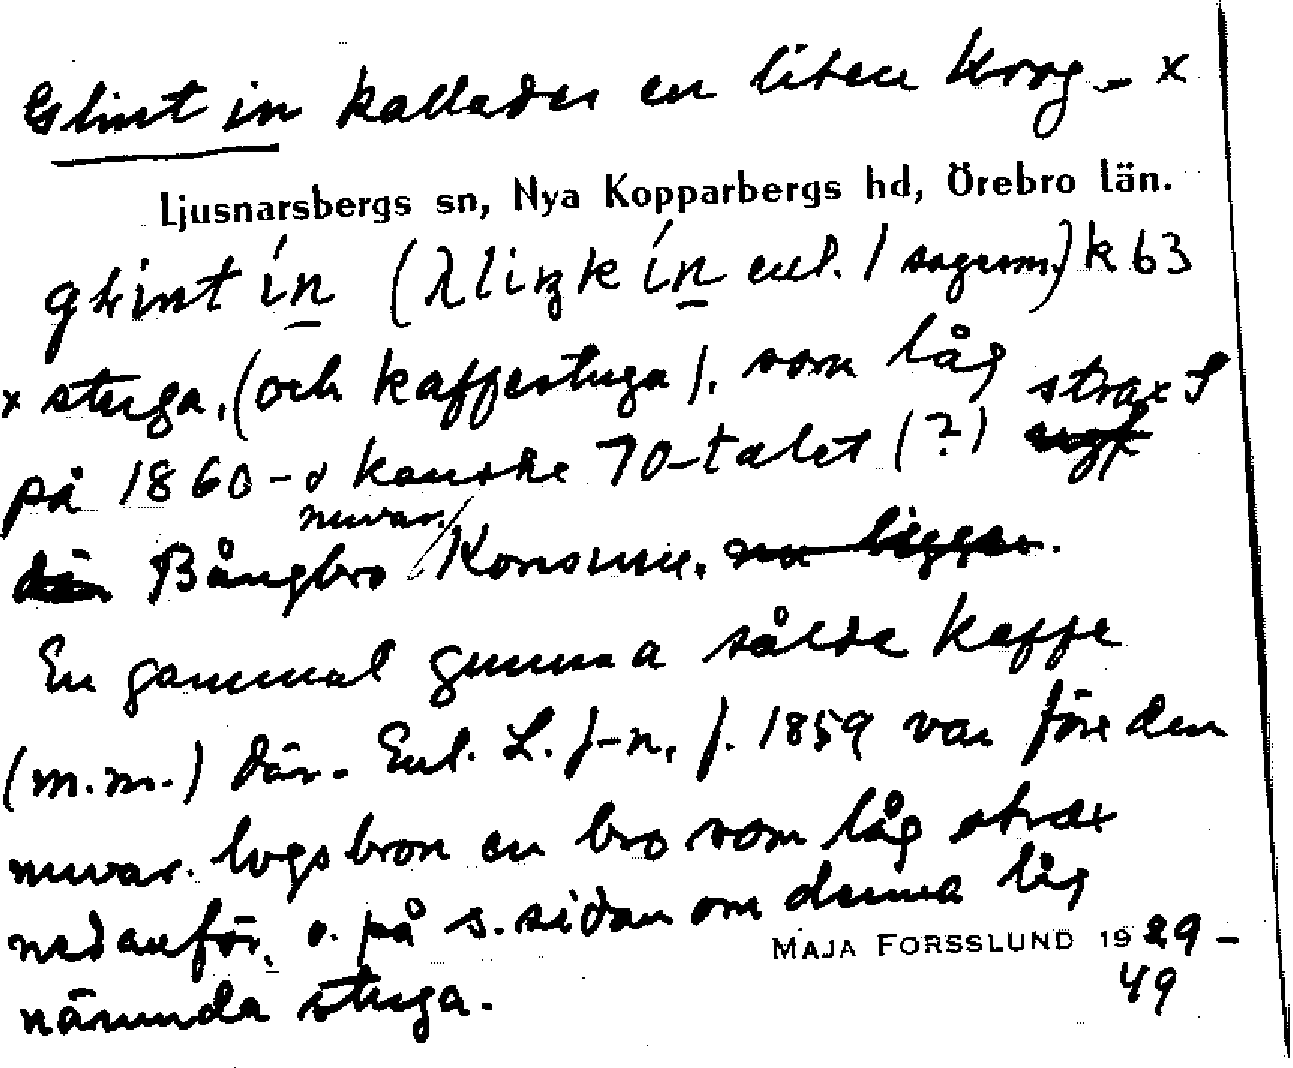 Glint in kallades en liten krog- x
Ljusnarsbergs sn, Nya Kopparbergs hd, Örebro län.
glint ín (λliŋk ín enl. 1 sagesm.) k 63
x stuga, (och kaffestuga), som låg strax S
på 1860- o kanske 70-talet (?)
nuvar.
där Bångbro Konsum. nu ligger.
En gammal gumma sålde kaffe
(m.m.) där. Enl. L. J-n, f. 1859 var före den
nuvar. logsbron en bro som låg strax
nedanför, o. på s. sidan om denna låg
nämnda stuga.
MAJA FORSSLUND 1929-
49